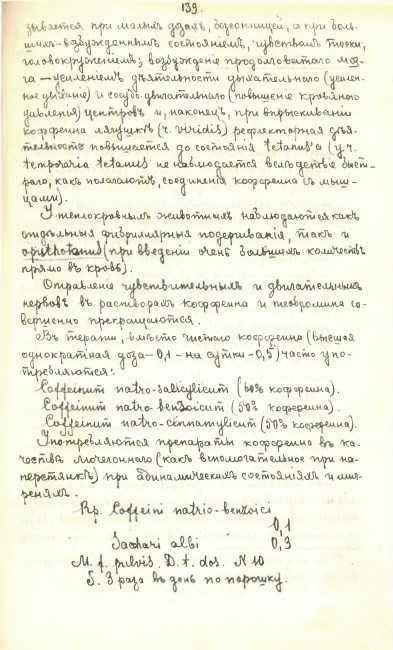 139.
зывается при малыхъ дозахъ, безсонницей, а при боль-
шихъ-возбужденнымъ состоянiемъ, чувствомъ тоски,
головокруженiемъ; возбужденiе продолговатаго моз-
га — усиленiемъ дѣятельности дыхательнаго (усилен-
ное дыханiе) и сосудо-двигательнаго (повышенiе кровяного
давленiя) центровъ и, наконецъ, при впрыскиванiи
коффеина лягушкѣ (r. viridis) рефлекторная дѣя-
тельность повышается до состоянiя tetanus'a (у r.
temporaria tetanus не наблюдается вслѣдствiе быст-
раго, какъ полагаютъ, соединенiя коффеина съ мыш-
цами).
У теплокровныхъ животныхъ наблюдаются какъ
отдѣльныя фибриллярныя подергиванiя, такъ и
opisthotonus (при введенiи очень большихъ количествъ
прямо въ кровь).
Отправленiе чувствительныхъ и двигательныхъ
нервовъ въ растворахъ коффеина и теобромина со-
вершенно прекращаются.
Въ терапiи, вмѣсто чистаго коффеина (высшая
однократная доза — 0,1 — на сутки — 0,5) часто упо-
требляются:
Coffeinum natro-salicylicum (60% коффеина).
Coffeinum natro-benzoicum (50% коффеина).
Coffeinum natro-cinnamylicum (50% коффеина).
Употребляются препараты коффеина въ ка-
чествѣ мочегоннаго (какъ вспомогательное при на-
перстянкѣ) при адинамическихъ состоянiяхъ и миг-
реняхъ.
Rp. Coffeini natrio-benzoici
0,1
Sacchari albi 0,3
M. f. pulvis. D. t. dos. N 10
S. 3 раза въ день по порошку.